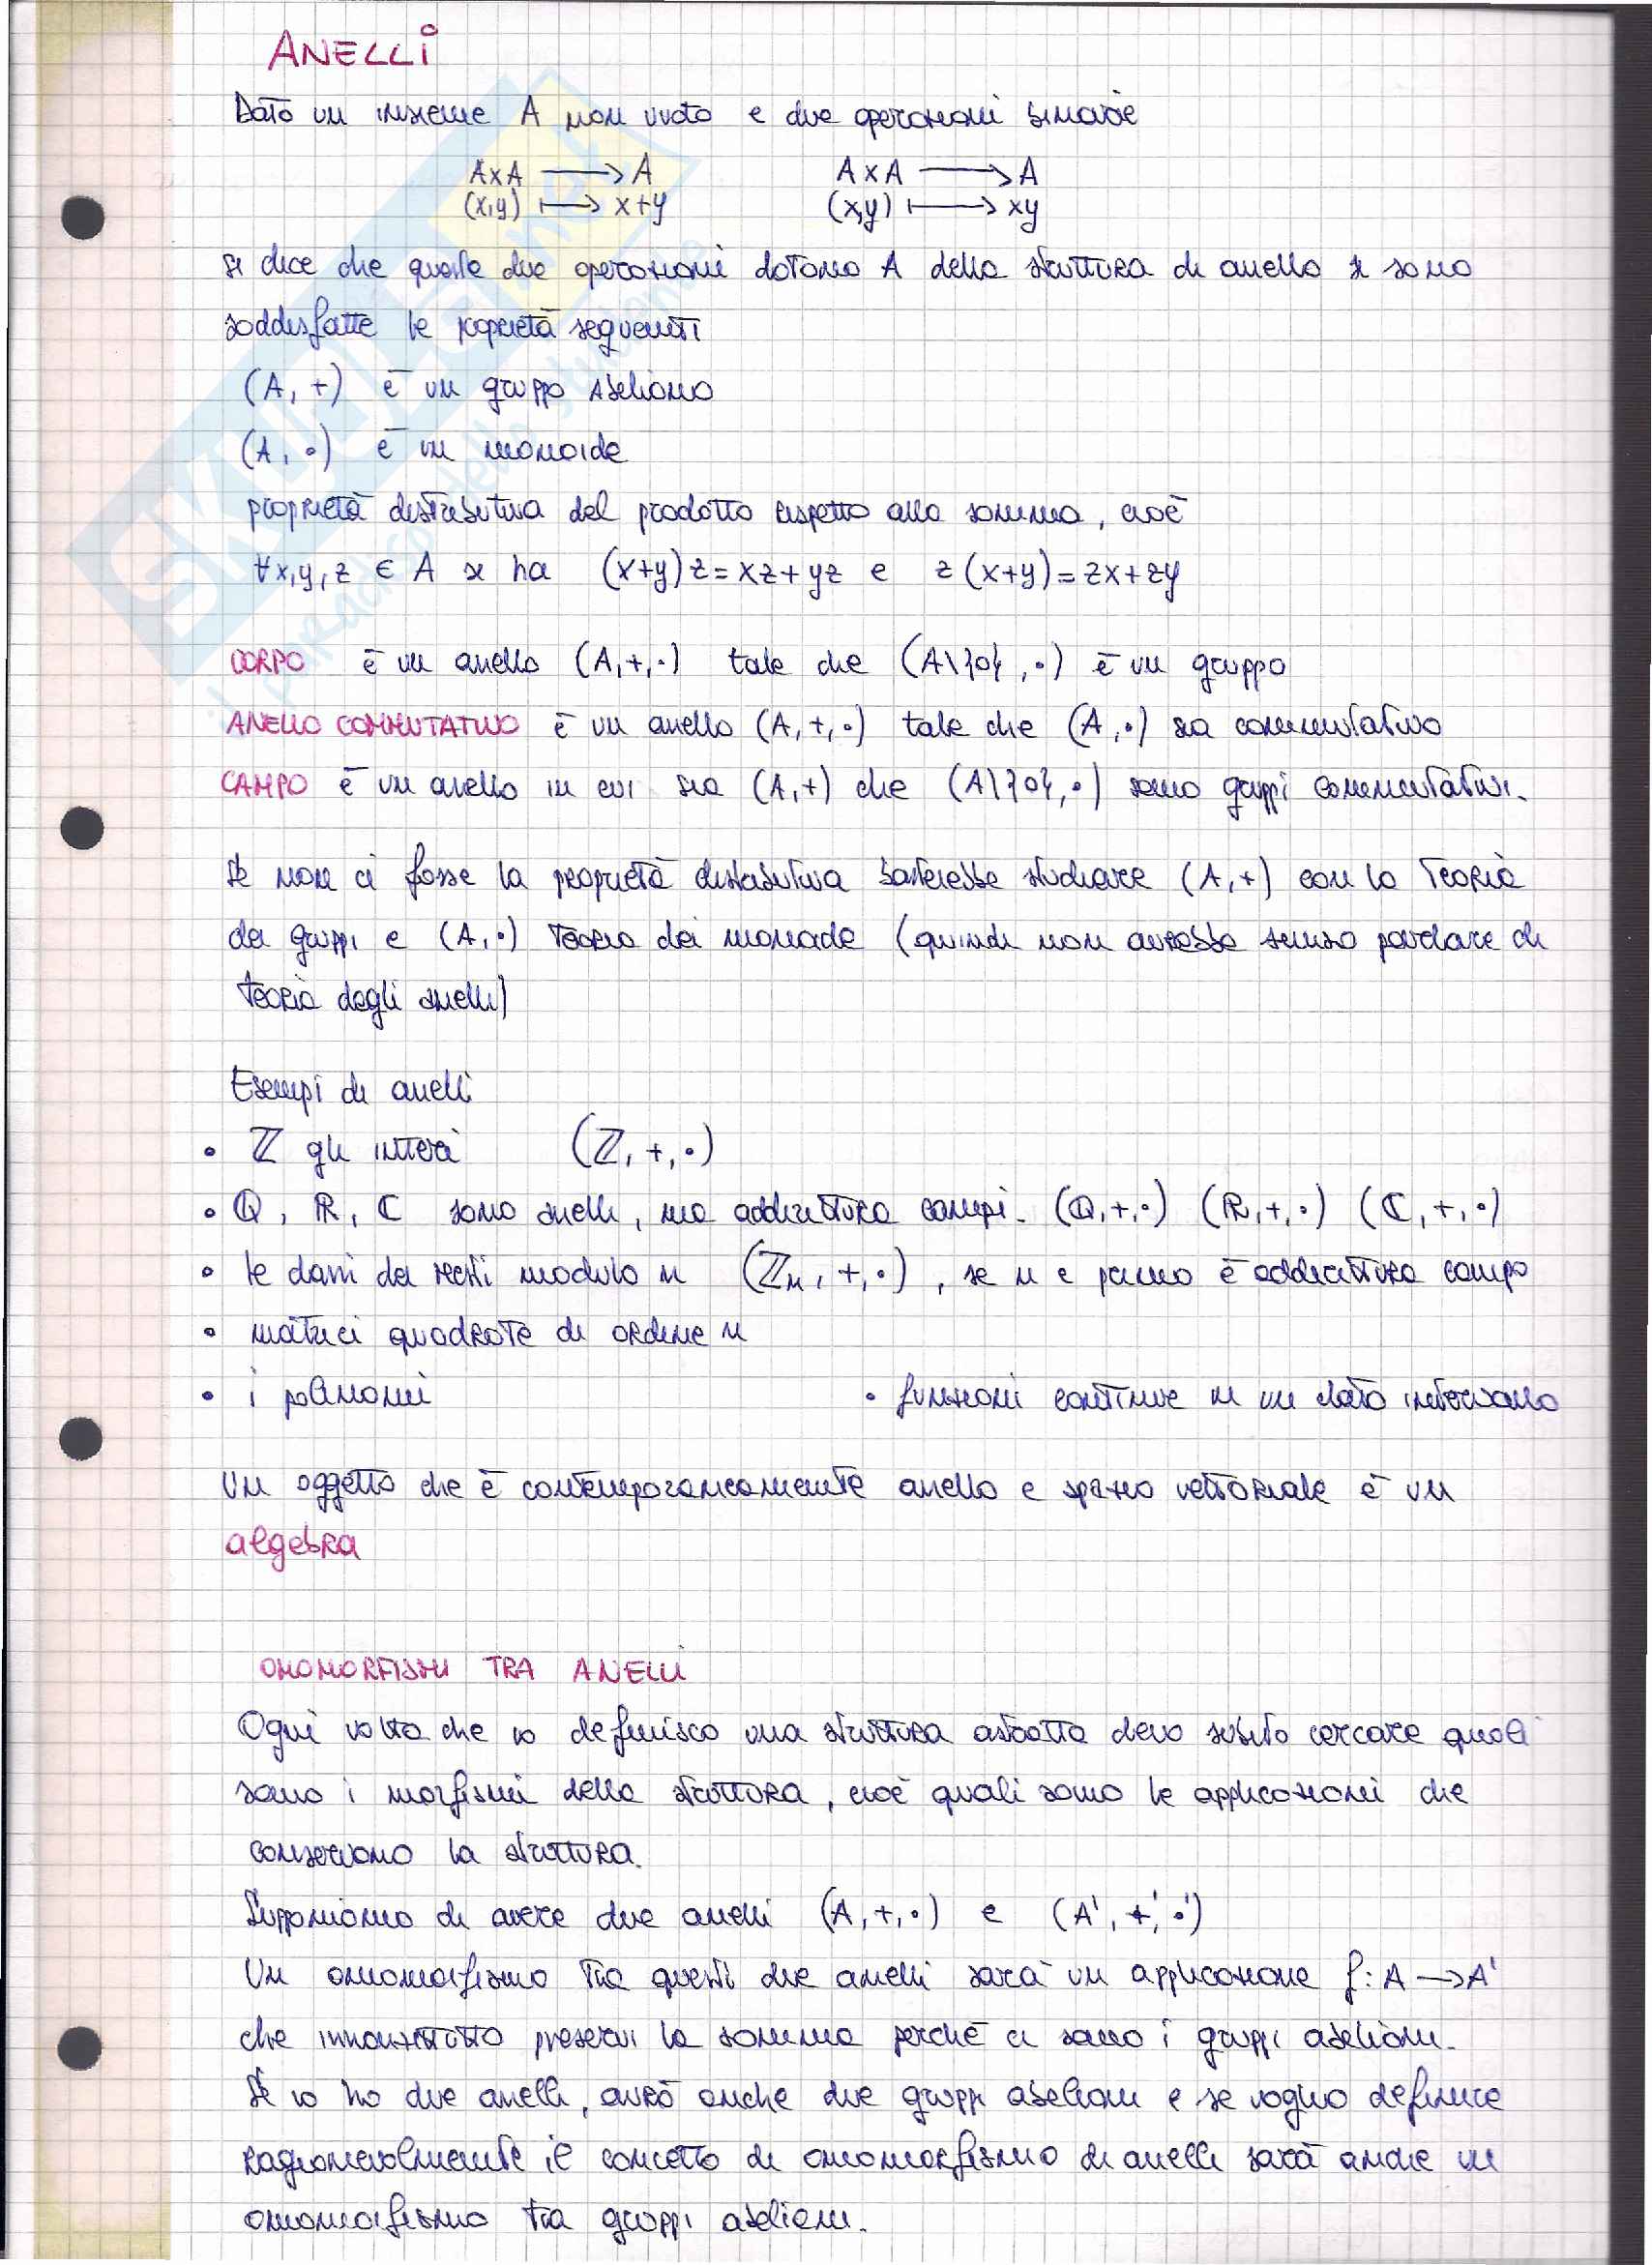 ANELLI
Dato un insieme A non vuoto e due operazioni binarie
AxA ⟶ A AxA ⟶ A
(x,y) ⟼ x+y (x,y) ⟼ xy
si dice che queste due operazioni dotano A della struttura di anello se sono
soddisfatte le proprietà seguenti
(A, +) è un gruppo abeliano
(A, •) è un monoide
proprietà distributiva del prodotto rispetto alla somma, cioè
∀x,y,z ∈ A si ha (x+y)z=xz+yz e z(x+y)=zx+zy
CORPO è un anello (A,+,·) tale che (A\{0},·) è un gruppo
ANELLO COMMUTATIVO è un anello (A,+,•) tale che (A,•) sia commutativo
CAMPO è un anello in cui sia (A,+) che (A\{0},•) sono gruppi commutativi.
Se non ci fosse la proprietà distributiva basterebbe studiare (A,+) con la teoria
dei gruppi e (A,•) teoria dei monoide (quindi non avrebbe senso parlare di
teoria degli anelli)
Esempi di anelli
• ℤ gli interi (ℤ,+,•)
• ℚ, ℝ, ℂ sono anelli, ma addirittura campi. (ℚ,+,•) (ℝ,+,•) (ℂ,+,•)
• le classi dei resti modulo n (ℤn,+,•), se n e primo è addirittura campo
• matrici quadrate di ordine n
• i polinomi • funzioni continue in un dato intervallo
Un oggetto che è contemporaneamente anello e spazio vettoriale è un
algebra
OMOMORFISMI TRA ANELLI
Ogni volta che io definisco una struttura astratta devo subito cercare quali
sono i morfismi della struttura, cioè quali sono le applicazioni che
conservano la struttura.
Supponiamo di avere due anelli (A,+,•) e (A',+',•')
Un omomorfismo tra questi due anelli sarà un applicazione f: A ⟶ A'
che innanzitutto preservi la somma perchè ci sono i gruppi abeliani.
Se io ho due anelli, avrò anche due gruppi abeliani e se voglio definire
ragionevolmente il concetto di omomorfismo di anelli sarà anche un
omomorfismo tra gruppi abeliani.